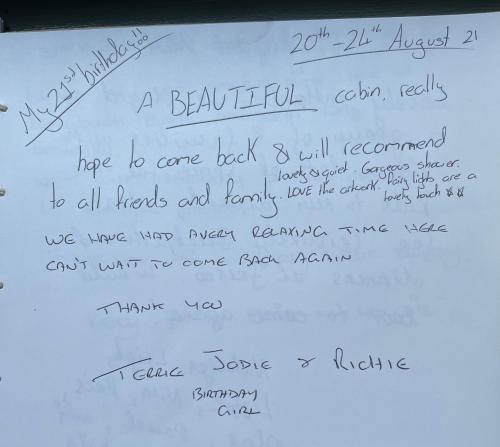 My 21st birthday!!
20th - 24th August 21
A BEAUTIFUL cabin, really
hope to come back & will recommend
to all friends and family.
lovely & quiet. Gorgeous shower.
LOVE the artwork. Fairy lights are a
lovely touch ☆☆
WE HAVE HAD A VERY RELAXING TIME HERE
CAN'T WAIT TO COME BACK AGAIN
THANK YOU
TERRIE JODIE & RICHIE
BIRTHDAY
GIRL